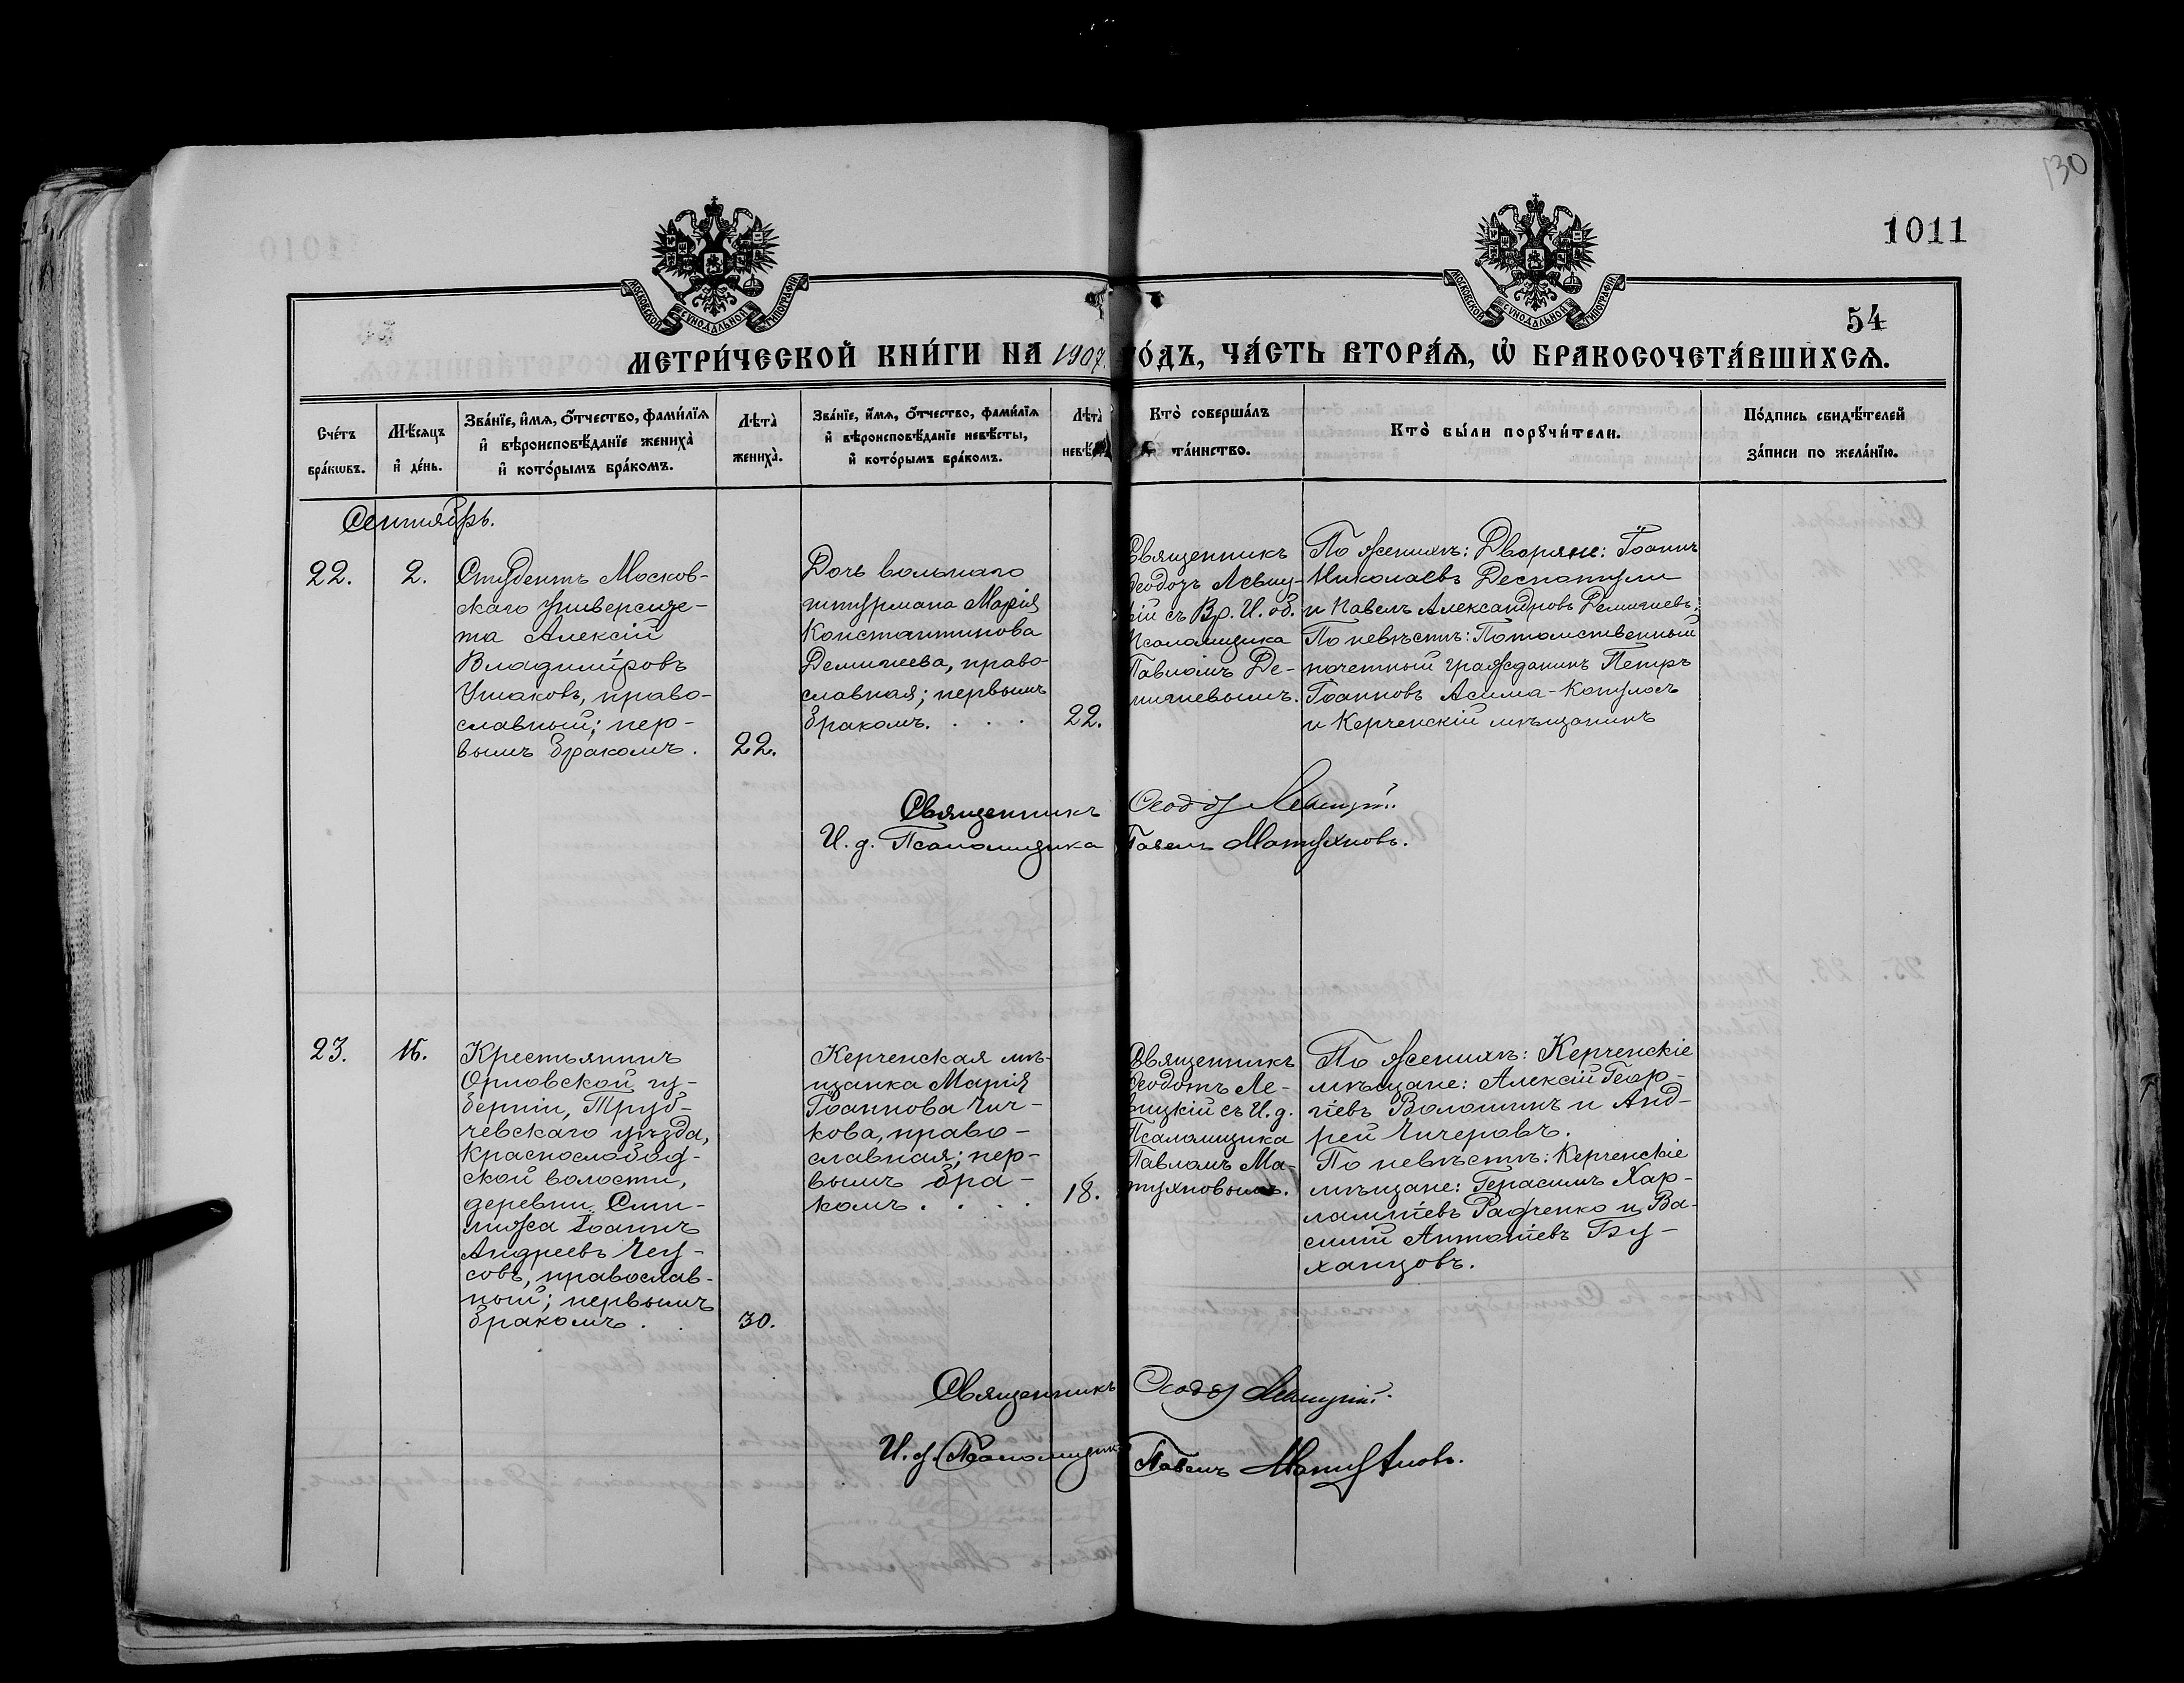 130
1011
54
МОСКОВСКОЙ СѴНОДАЛЬНОЙ ТИПОГРАФІИ
МОСКОВСКОЙ СѴНОДАЛЬНОЙ ТИПОГРАФІИ
МЕТРИ́ЧЕСКОЙ КНИ́ГИ НА 1907. ГО́ДЪ, ЧА́СТЬ ВТОРА́Я, Ѡ҆ БРАКОСОЧЕТА́ВШИХСЯ.
Сче́тъ бра́кѡвъ.
Мѣ́сяцъ и҆ де́нь.
Зва́нїе, и҆́мя, ѻ҆́тчество, фами́лїя
и҆ вѣроисповѣ́данїе жениха̀
и҆ кото́рымъ бра́комъ.
Лѣта̀ жениха̀.
Зва́нїе, и҆́мя, ѻ҆́тчество, фами́лїя
и҆ вѣроисповѣ́данїе невѣ́сты,
и҆ кото́рымъ бра́комъ.
Лѣта̀ невѣ́с
Кто̀ соверша́лъ
та́инство.
Кто̀ бы́ли порꙋчи́тели.
По́дпись свидѣ́телей
за́писи по жела́нїю.
Сентябрь.
22.
2.
Студентъ Москов-
скаго Университе-
та Алексій
Владиміровъ
Ушаковъ, право-
славный; пер-
вымъ бракомъ.
22.
Дочь вольнаго
штурмана Марія
Константинова
Демишева, право-
славная; первымъ
бракомъ. . . .
22.
Священникъ
Ѳеодотъ Левиц-
кій съ Вр. И. об.
Псаломщика
Павломъ Де-
мишевымъ.
По женихѣ: Дворяне: Іоаннъ
Николаевъ Деспотули
и Павелъ Александровъ Демишевъ;
По невѣстѣ: Потомственный
почетный гражданинъ Петръ
Іоанновъ Асима-Котулосъ
и Керченскій мѣщанинъ
Священникъ Ѳеодотъ Левицкій.
И. д. Псаломщика Павелъ Матухновъ.
23.
16.
Крестьянинъ
Орловской гу-
берніи, Труб-
чевскаго уѣзда,
Краснослобод-
ской волости,
деревни
Іоаннъ
Андреевъ Чеу-
совъ, православ-
ный; первымъ
бракомъ.
30.
Керченская мѣ-
щанка Марія
Іоаннова Чич-
кова, право-
славная; пер-
вымъ бра-
комъ. . . .
18.
Священникъ
Ѳеодотъ Ле-
вицкій съ И. д.
Псаломщика
Павломъ Ма-
тухновымъ.
По женихѣ: Керченскіе
мѣщане: Алексій Геор-
гіевъ Волошинъ и Анд-
рей Чичеровъ.
По невѣстѣ: Керченскіе
мѣщане: Герасимъ Хар-
лампіевъ Радченко и Ва-
силій Антоніевъ Бу-
ханцовъ.
Священникъ Ѳеодотъ Левицкій.
И. д. Псаломщика Павелъ Матухновъ.